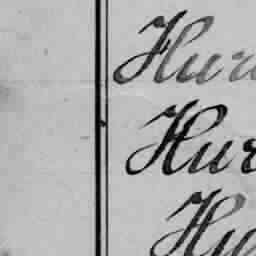 Hur
Hur
Hu